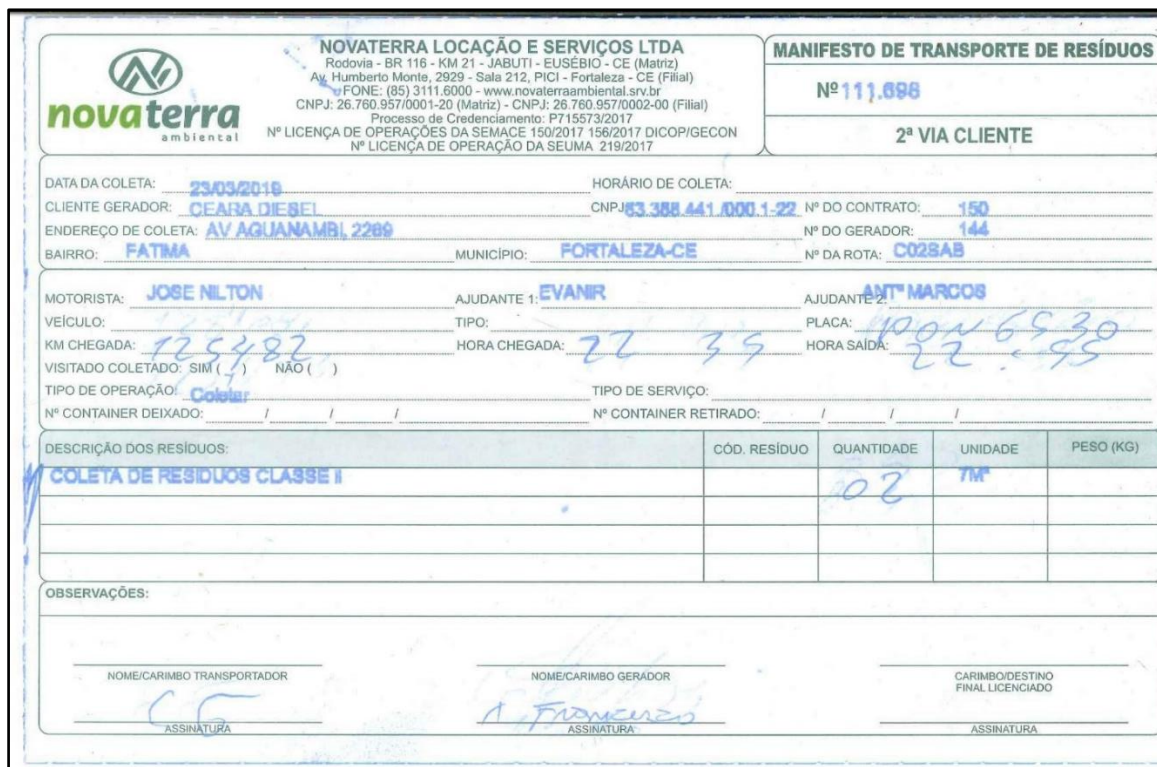 novaterra
ambiental
NOVATERRA LOCAÇÃO E SERVIÇOS LTDA
Rodovia - BR 116 - KM 21 - JABUTI - EUSÉBIO - CE (Matriz)
Av. Humberto Monte, 2929 - Sala 212, PICI - Fortaleza - CE (Filial)
FONE: (85) 3111.6000 - www.novaterraambiental.srv.br
CNPJ: 26.760.957/0001-20 (Matriz) - CNPJ: 26.760.957/0002-00 (Filial)
Processo de Credenciamento: P715573/2017
Nº LICENÇA DE OPERAÇÕES DA SEMACE 150/2017 156/2017 DICOP/GECON
Nº LICENÇA DE OPERAÇÃO DA SEUMA 219/2017
MANIFESTO DE TRANSPORTE DE RESÍDUOS
Nº 111.698
2ª VIA CLIENTE
DATA DA COLETA: 23/03/2019 HORÁRIO DE COLETA:
CLIENTE GERADOR: CEARA DIESEL CNPJ 63.388.441/000.1-22 Nº DO CONTRATO: 150
ENDEREÇO DE COLETA: AV AGUANAMBI, 2269 Nº DO GERADOR: 144
BAIRRO: FATIMA MUNICÍPIO: FORTALEZA-CE Nº DA ROTA: C02SAB
MOTORISTA: JOSE NILTON AJUDANTE 1: EVANIR AJUDANTE 2: ANTº MARCOS
VEÍCULO: TIPO: PLACA: 6530
KM CHEGADA: 125482 HORA CHEGADA: 22 35 HORA SAÍDA: 22:55
VISITADO COLETADO: SIM ( ) NÃO ( )
TIPO DE OPERAÇÃO: Coletar TIPO DE SERVIÇO:
Nº CONTAINER DEIXADO: / / / Nº CONTAINER RETIRADO: / / /
DESCRIÇÃO DOS RESÍDUOS: CÓD. RESÍDUO QUANTIDADE UNIDADE PESO (KG)
COLETA DE RESIDUOS CLASSE II 02 7M³
OBSERVAÇÕES:
NOME/CARIMBO TRANSPORTADOR NOME/CARIMBO GERADOR CARIMBO/DESTINO
FINAL LICENCIADO
ASSINATURA ASSINATURA ASSINATURA